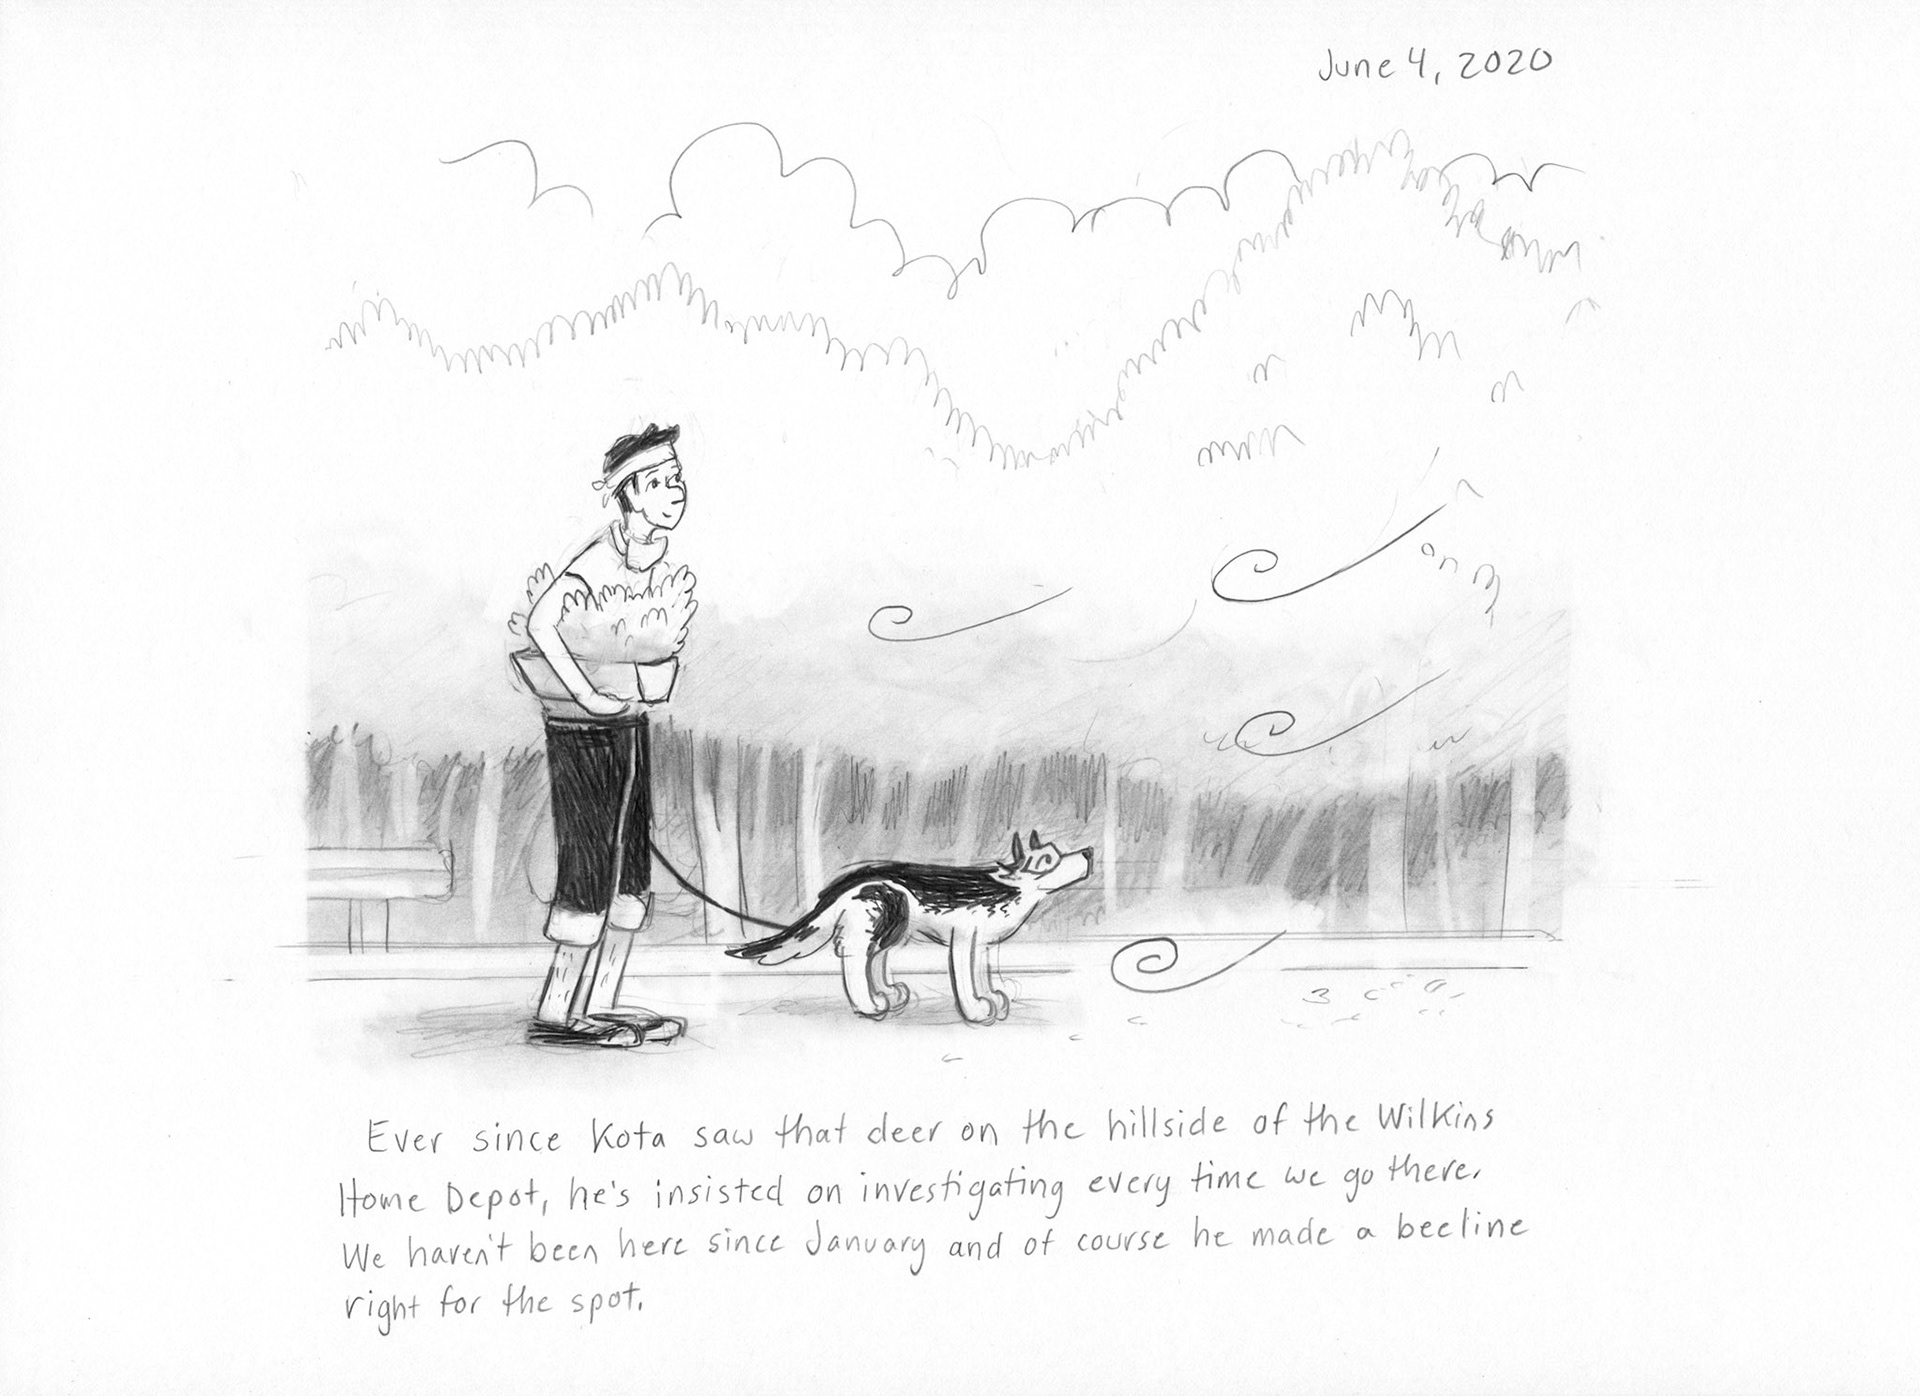 June 4, 2020
Ever since Kota saw that deer on the hillside of the Wilkins
Home Depot, he's insisted on investigating every time we go there.
We haven't been here since January and of course he made a beeline
right for the spot.